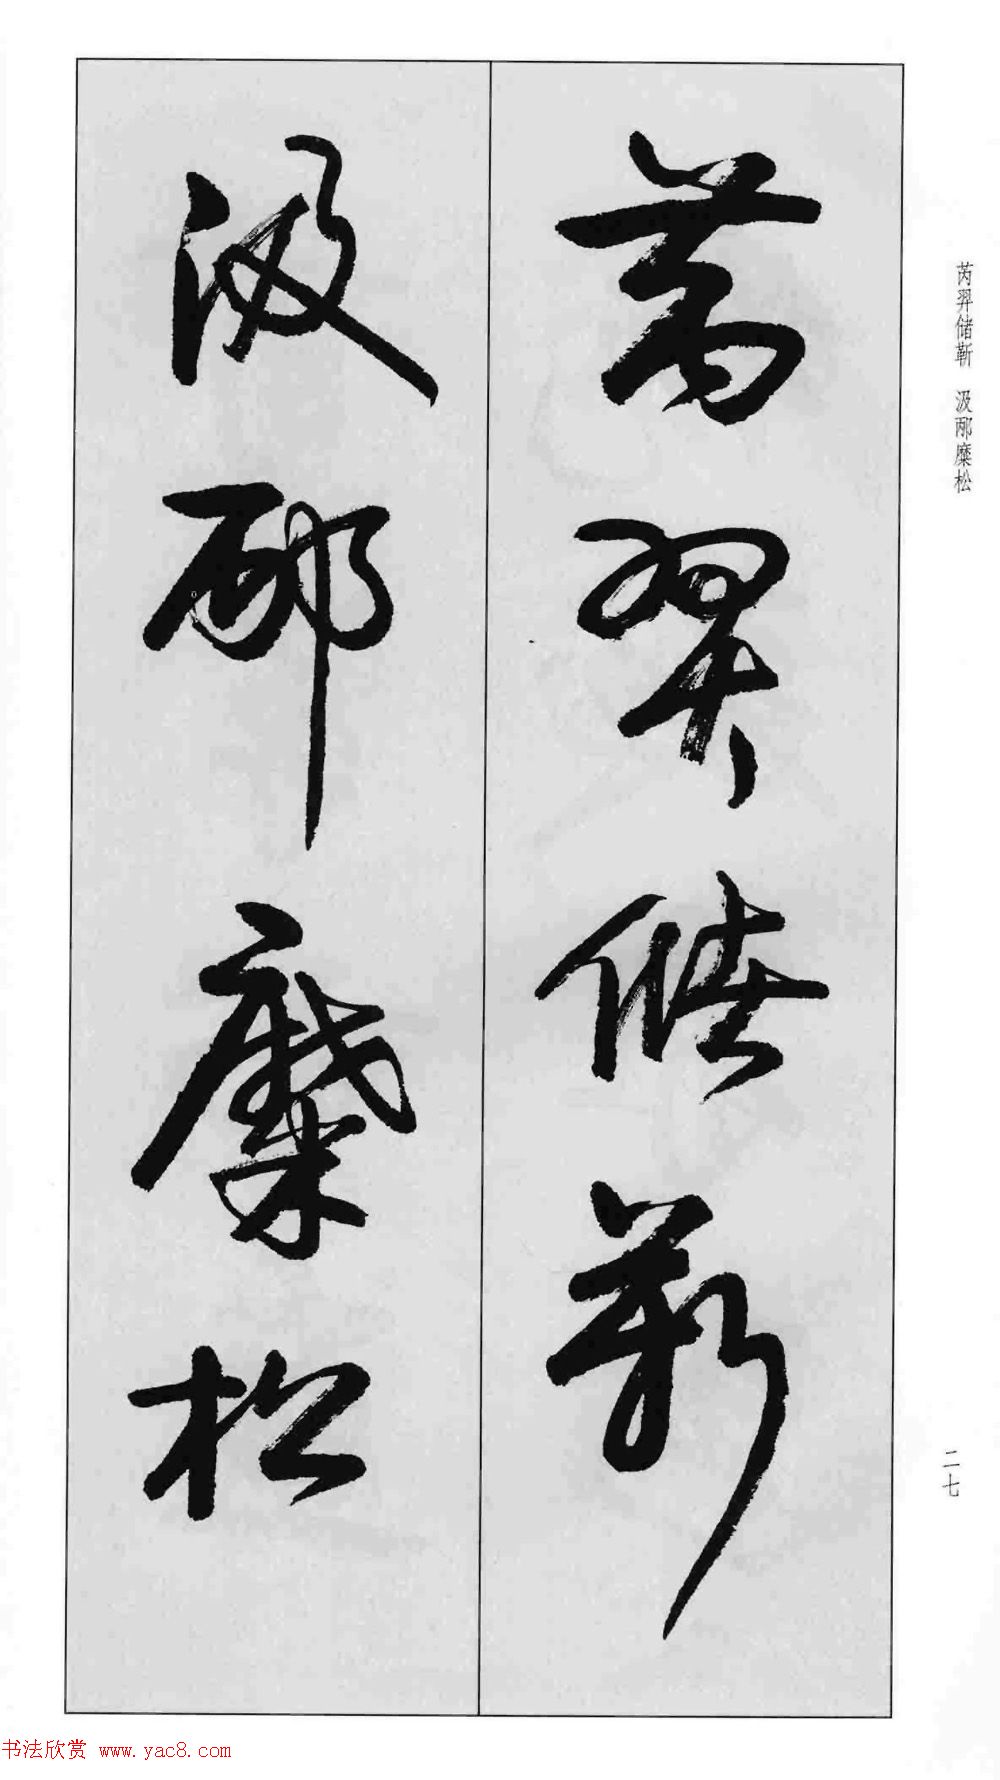 芮羿储靳
汲邴糜松
芮羿储靳 汲邴糜松
二七
书法欣赏 www.yac8.com